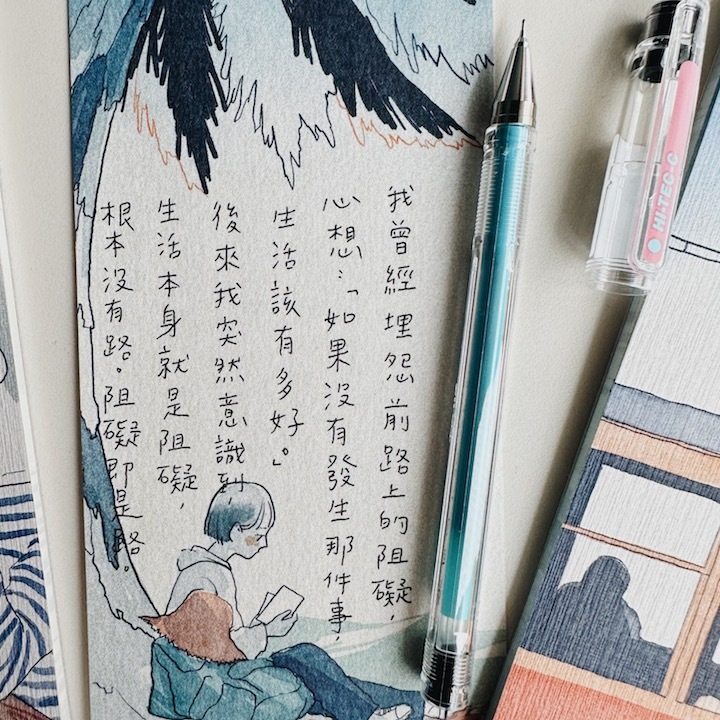 我曾經埋怨前路上的阻礙，
心想：「如果沒有發生那件事，
生活該有多好。」
後來我突然意識到
生活本身就是阻礙，
根本沒有路。阻礙即是路。
HI-TEC-C